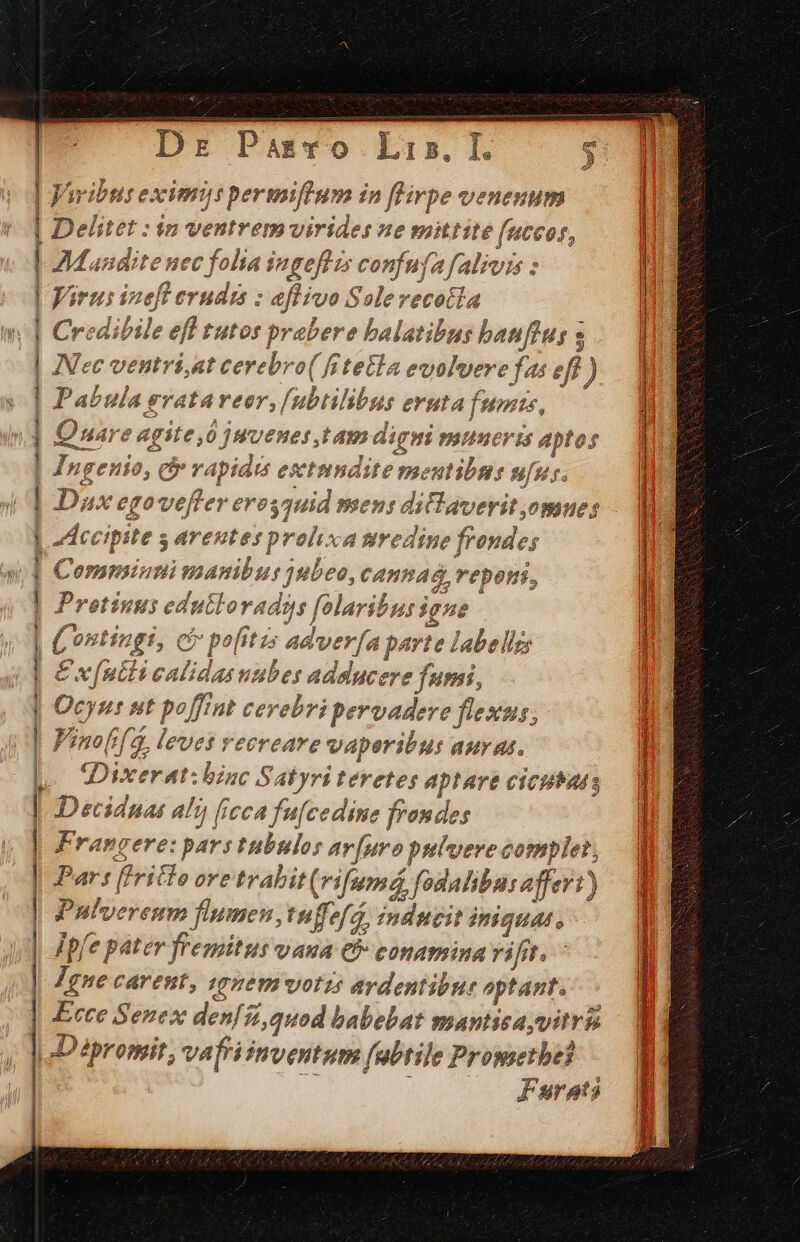 De Paeto Lib. I. 5
Viribus eximijs permiſtum in ſtirpe venenum
Delitet : in ventrem virides ne mittite ſuccos,
Mandite nec folia ingeſtis confuſa ſalivis :
Virus ineſt crudis : æſtivo Sole recocta
Credibile eſt tutos præbere halatibus hauſtus ;
Nec ventri, at cerebro ( ſi tecta evolvere fas eſt )
Pabula grata reor, ſubtilibus eruta fumis,
Quare agite, ô juvenes, tam digni muneris aptos
Ingenio, & rapidis extundite mentibus uſus.
Dux ego veſter ero, quid mens dictaverit, omnes
Accipite ; arentes prolixa uredine frondes
Comminui manibus jubeo, cannaq́, reponi,
Protinus educto radijs ſolaribus igne
Contingi, & poſitis adverſa parte labellis
Exſucti calidas nubes adducere fumi,
Ocyus ut poſſint cerebri pervadere flexus,
Vinoſiſq́, leves recreare vaporibus auras.
Dixerat: hinc Satyri teretes aptare cicutas ;
Deciduas alij ſicca fuſcedine frondes
Frangere: pars tubulos arſuro pulvere complet,
Pars ſtricto ore trahit (riſumq́, ſodalibus affert)
Pulvereum flumen, tuſſeſq́, inducit iniquas,
Ipſe pater fremitus vana & conamina riſit.
Igne carent, ignem votis ardentibus optant.
Ecce Senex denſũ, quod habebat mantica, vitrũ
Depromit, vafri inventum ſubtile Promethei
Furati